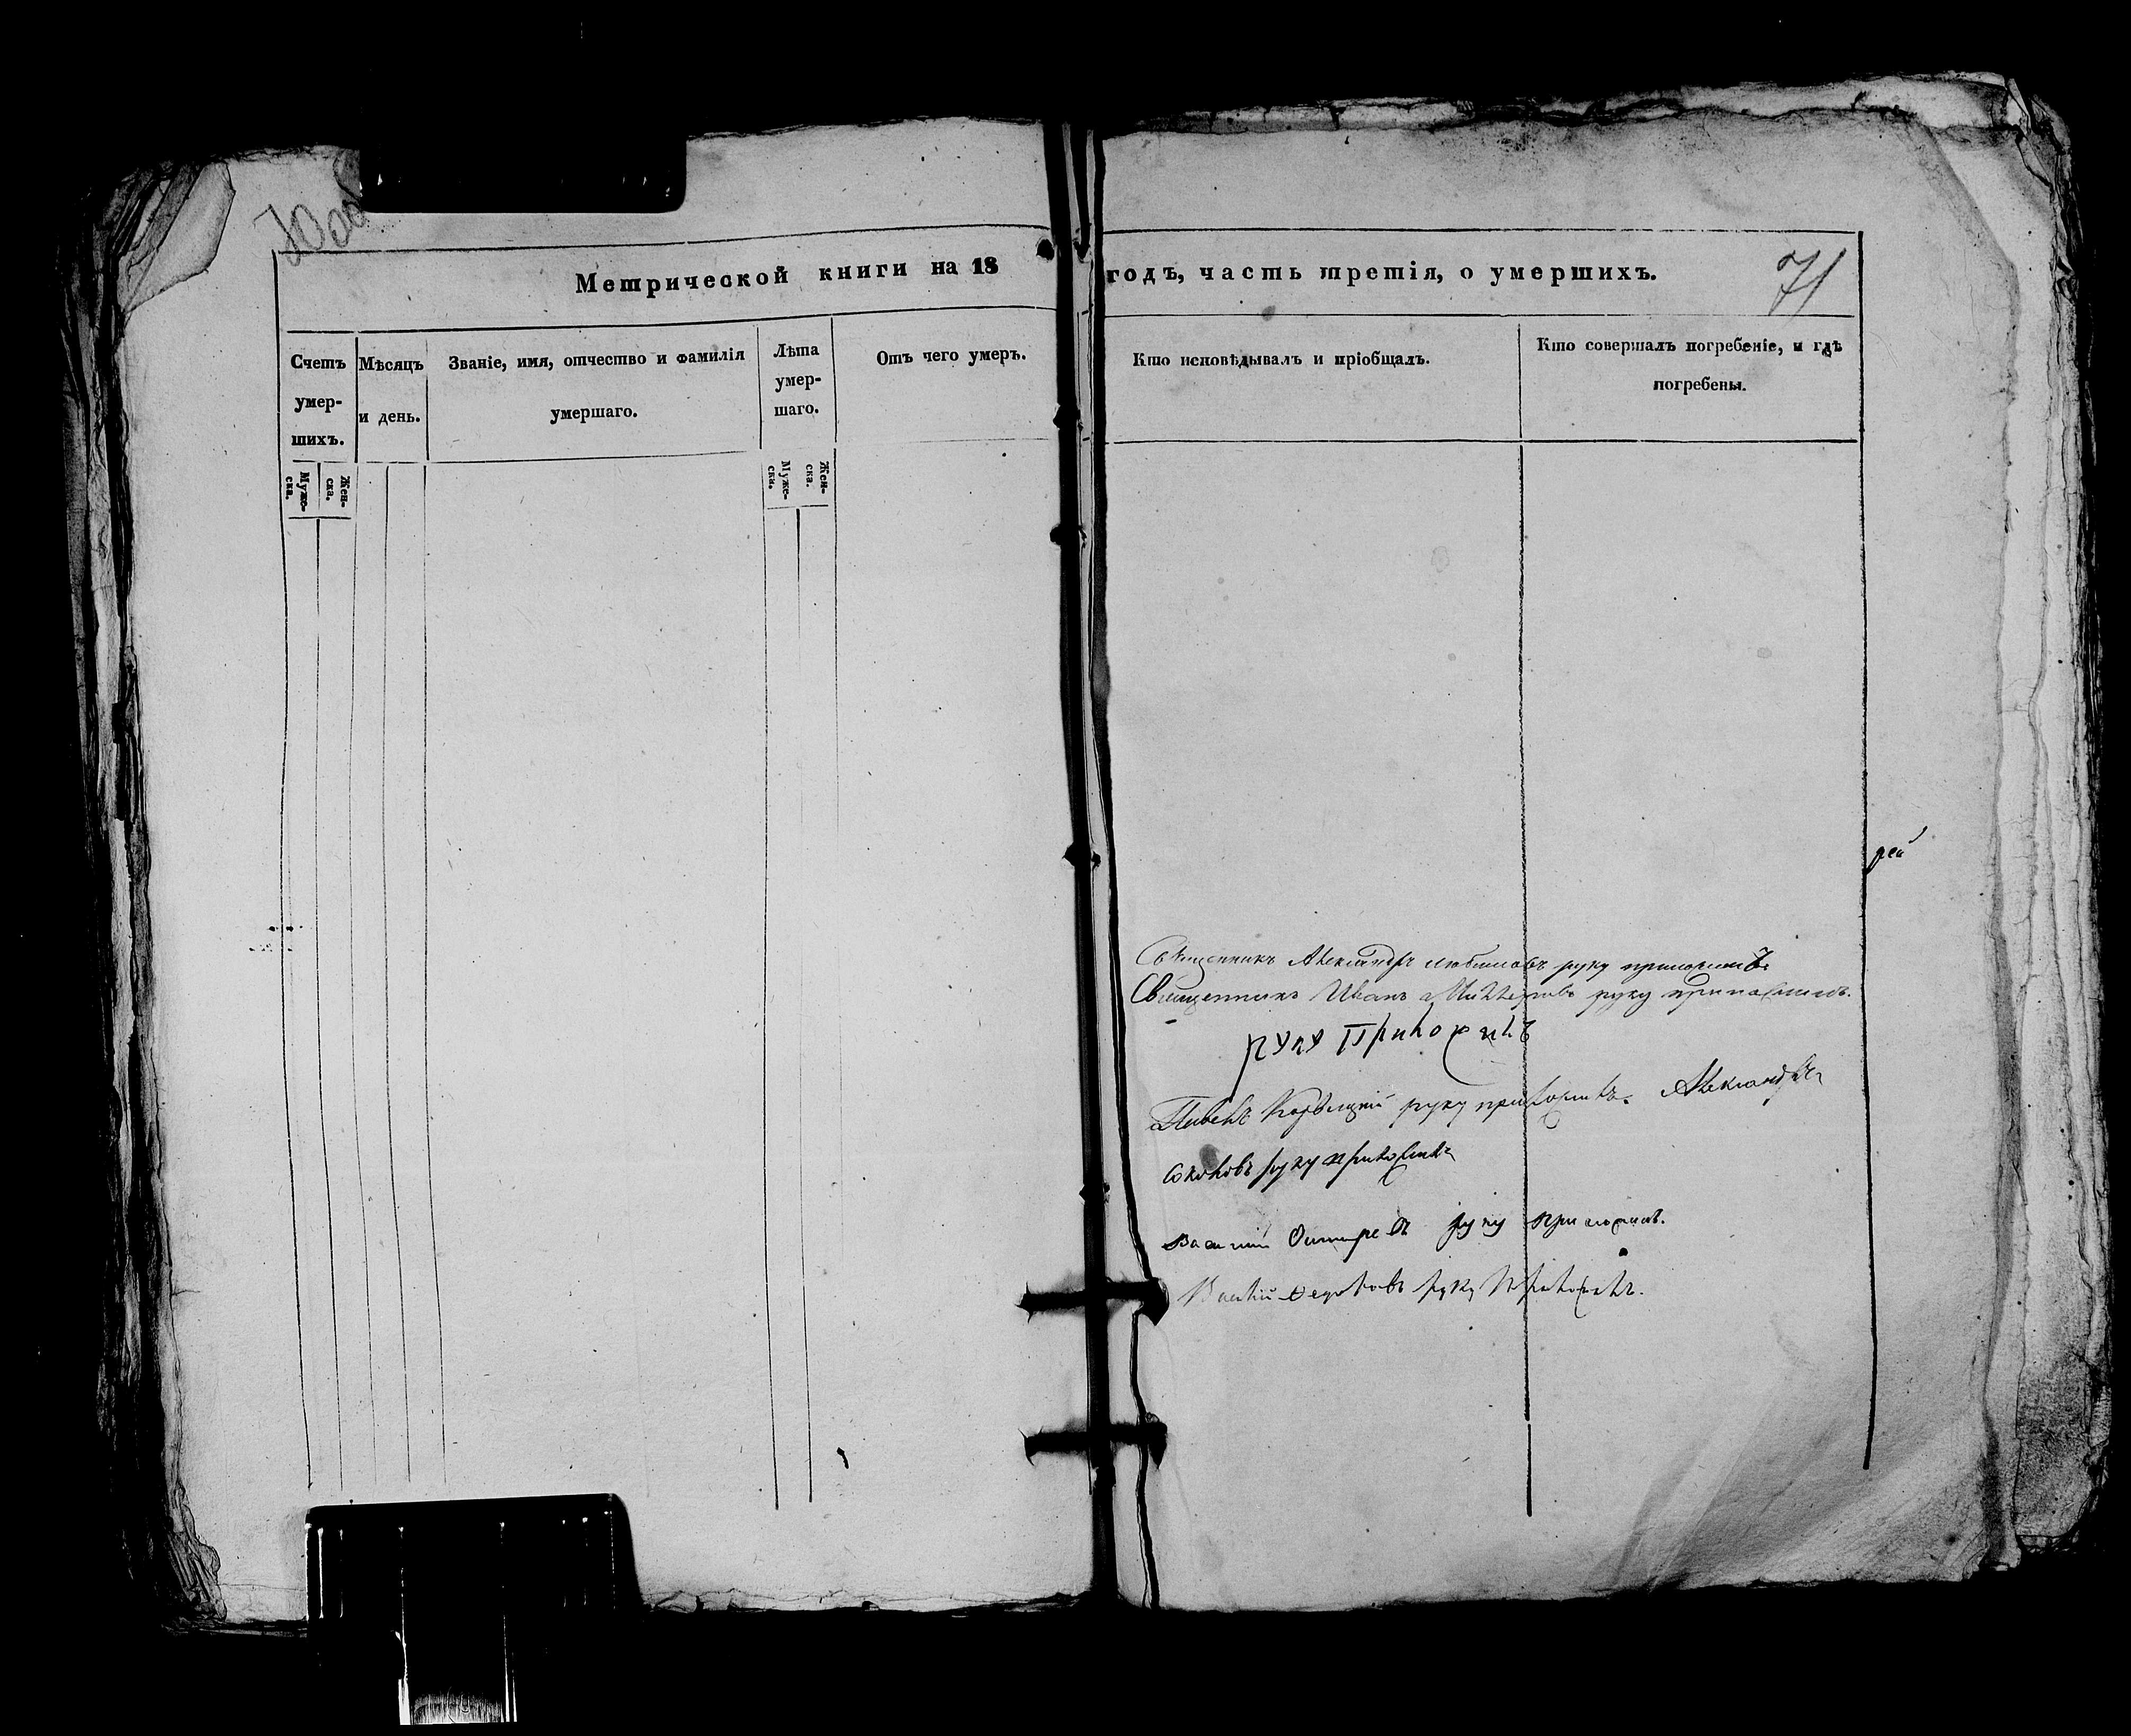 Метрической книги на 18 годъ, часть третія, о умершихъ.
71
Счетъ умер-шихъ.
Мѣсяцъ и день.
Званіе, имя, отчество и фамилія умершаго.
Лѣта умер-шаго.
Отъ чего умеръ.
Кто исповѣдывалъ и пріобщалъ.
Кто совершалъ погребеніе, и гдѣ погребены.
Муже-ска.
Жен-ска.
Муже-ска.
Жен-ска.
рей
Священникъ Александръ Любимовъ руку приложилъ
Священникъ Иванъ руку приложилъ.
руку Приложилъ
руку приложилъ. Александръ
Соколовъ руку приложилъ
Василий руку приложилъ.
руку Приложилъ.